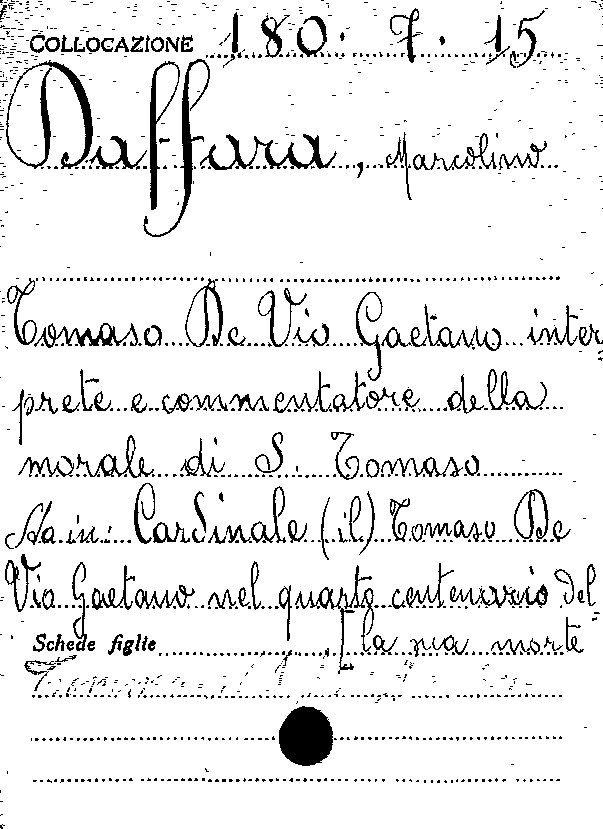 COLLOCAZIONE 180. 7. 15
Daffara, Marcolino
Tomaso De Vio Gaetano inter=
prete e commentatore della
morale di S. Tomaso
Sta in: Cardinale (il) Tomaso De
Vio Gaetano nel quarto centenario del=
[la sua morte
Schede figlie